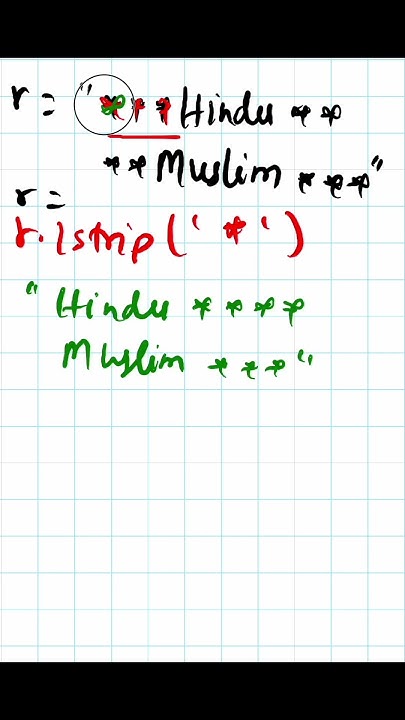 r = "***Hindu **
**Muslim ***"
r =
r.lstrip('*')
"Hindu ****
Muslim ***"